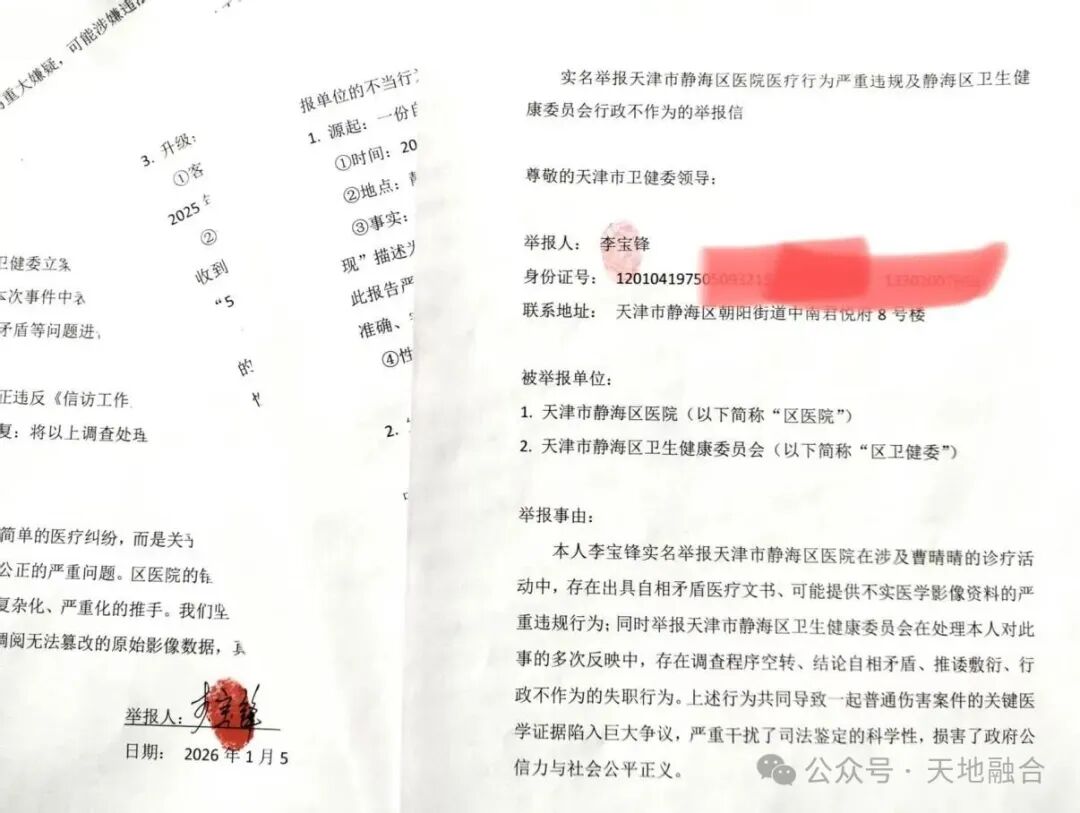 重大嫌疑，可能涉嫌违
卫健委立案
本次事件中表
矛盾等问题进
正违反《信访工作
复：将以上调查处理
简单的医疗纠纷，而是关于
公正的严重问题。区医院的错
复杂化、严重化的推手。我们坚
调阅无法篡改的原始影像数据，真
举报人：
日期： 2026 年 1 月 5
3. 升级：
①客
2025 年
②
收到
“5
的
报单位的不当行为
1. 源起：一份自
①时间：20
②地点：静
③事实：
现”描述为
此报告严
准确、
④性
2.
实名举报天津市静海区医院医疗行为严重违规及静海区卫生健
康委员会行政不作为的举报信
尊敬的天津市卫健委领导：
举报人： 李宝锋
身份证号：
联系地址： 天津市静海区朝阳街道中南君悦府 8 号楼
被举报单位：
1. 天津市静海区医院（以下简称“区医院”）
2. 天津市静海区卫生健康委员会（以下简称“区卫健委”）
举报事由：
本人李宝锋实名举报天津市静海区医院在涉及曹晴晴的诊疗活
动中，存在出具自相矛盾医疗文书、可能提供不实医学影像资料的严
重违规行为；同时举报天津市静海区卫生健康委员会在处理本人对此
事的多次反映中，存在调查程序空转、结论自相矛盾、推诿敷衍、行
政不作为的失职行为。上述行为共同导致一起普通伤害案件的关键医
学证据陷入巨大争议，严重干扰了司法鉴定的科学性，损害了政府公
信力与社会公平正义。
公众号 · 天地融合